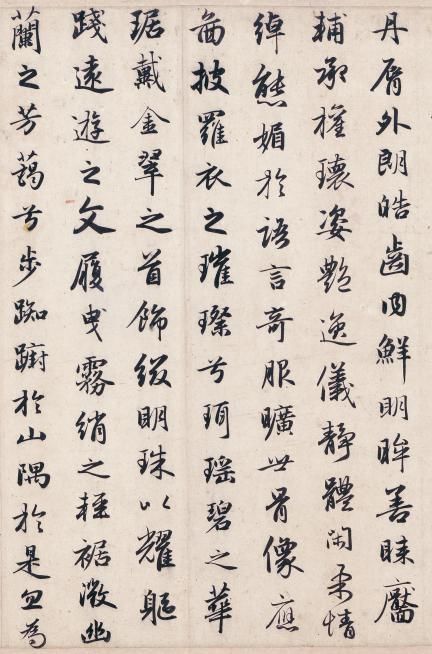 丹脣外朗皓齒内鮮明眸善睞靨
輔承權瓌姿艷逸儀靜體閑柔情
綽態媚於語言奇服曠世骨像應
啚披羅衣之璀璨兮珥瑶碧之華
琚戴金翠之首飾綴明珠以耀軀
踐遠遊之文履曳霧綃之輕裾微幽
蘭之芳藹兮步踟躕於山隅於是忽為